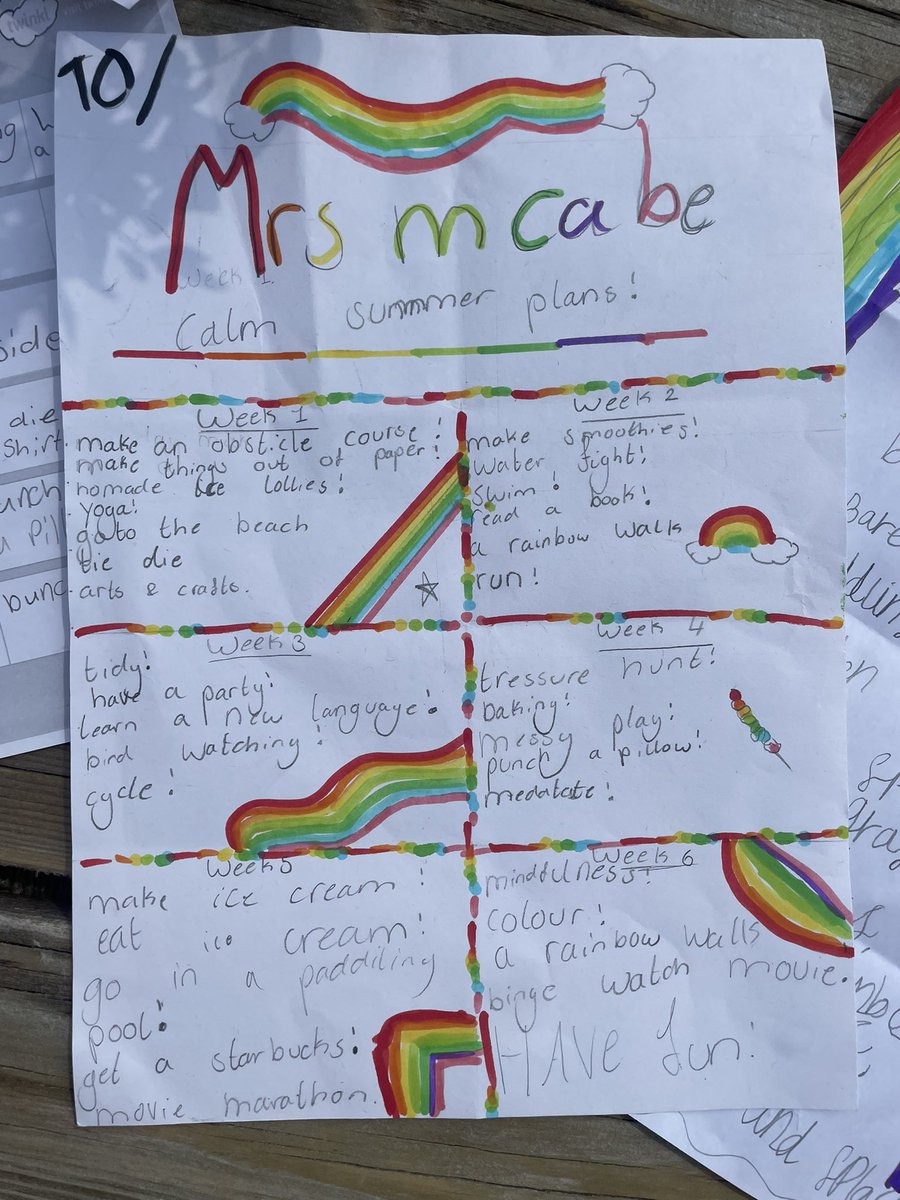 twinkl
10/
Mrs mcabe
Week 1
Calm summer plans!
Week 1
make an obsticle course!
make things out of paper!
homade ice lollies!
yoga!
goto the beach
tie die
arts & crafts.
Week 2
make smoothies!
water fight!
swim!
read a book!
a rainbow walk
run!
Week 3
tidy!
have a party!
learn a new language!
bird watching!
cycle!
Week 4
tressure hunt!
baking!
messy play!
punch a pillow!
medatate!
Week 5
make ice cream!
eat ice cream!
go in a paddiling
pool!
get a starbucks!
movie marathon.
Week 6
mindfulness!
colour!
a rainbow walls
binge watch movie.
HAVE fun!
side
die
shirt
Bare
and